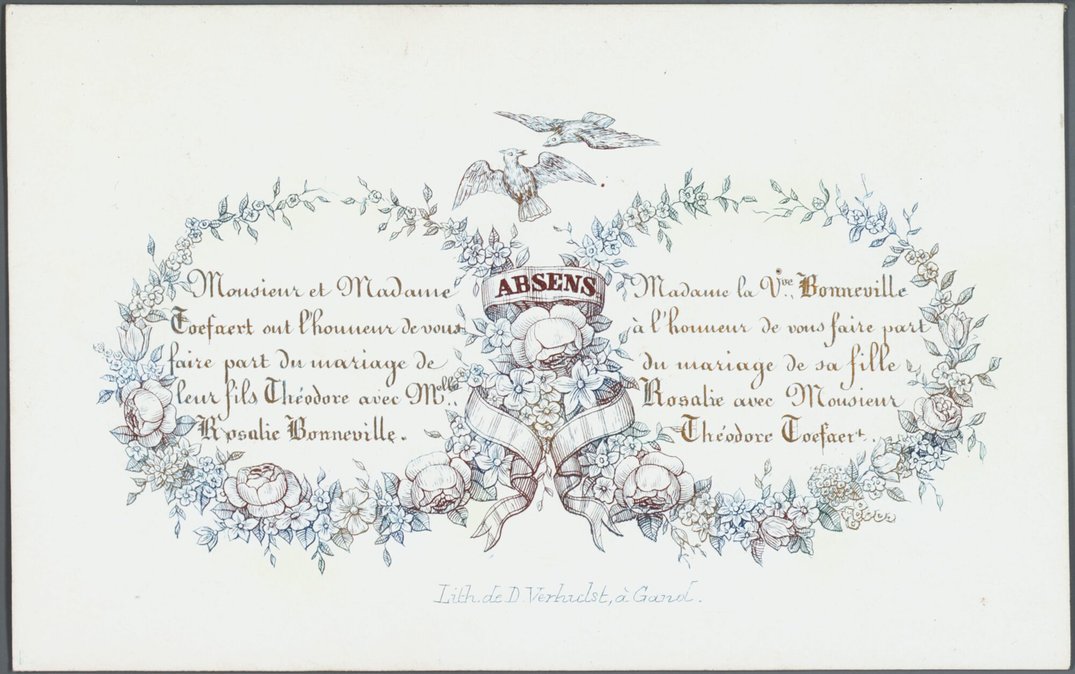 ABSENS.
Monsieur et Madame
Toefaert ont l'honneur de vous
faire part du mariage de
leur fils Théodore avec Melle
Rosalie Bonneville.
Madame la Vve. Bonneville
à l'honneur de vous faire part
du mariage de sa fille
Rosalie avec Monsieur
Théodore Toefaert.
Lith. de D. Verhulst, à Gand.